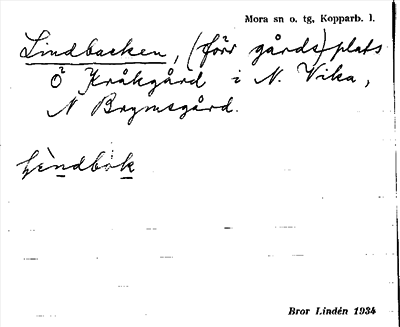 Mora sn o. tg, Kopparb. l.
Lindbacken, (förr gårds)plats
Ö Kråkgård i N. Vika,
N Brymsgård.
lìndbòk
Bror Lindén 1934